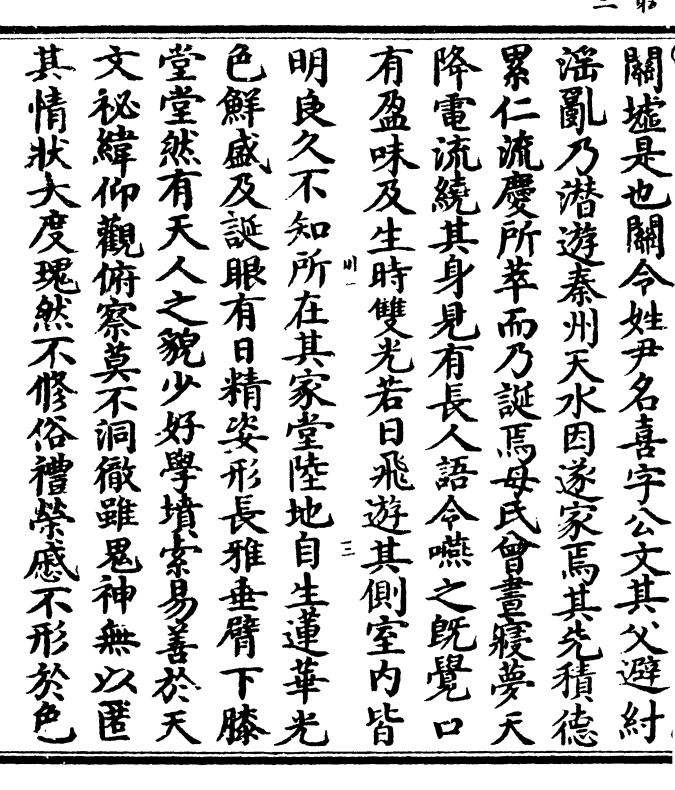 關墟是也關令姓尹名喜字公文其父避紂
滛亂乃潛遊秦州天水因遂家焉其先積德
累仁流慶所萃而乃誕焉母氏曾晝寢夢天
降電流繞其身見有長人語令嚥之旣覺口
有盈味及生時雙光若日飛遊其側室内皆
三
明良久不知所在其家堂陸地自生蓮華光
色鮮盛及誕眼有日精姿形長雅垂臂下膝
堂堂然有天人之貌少好學墳索易善於天
文祕緯仰觀俯察莫不洞徹雖鬼神無以匿
其情狀大度瑰然不修俗禮榮慼不形於色